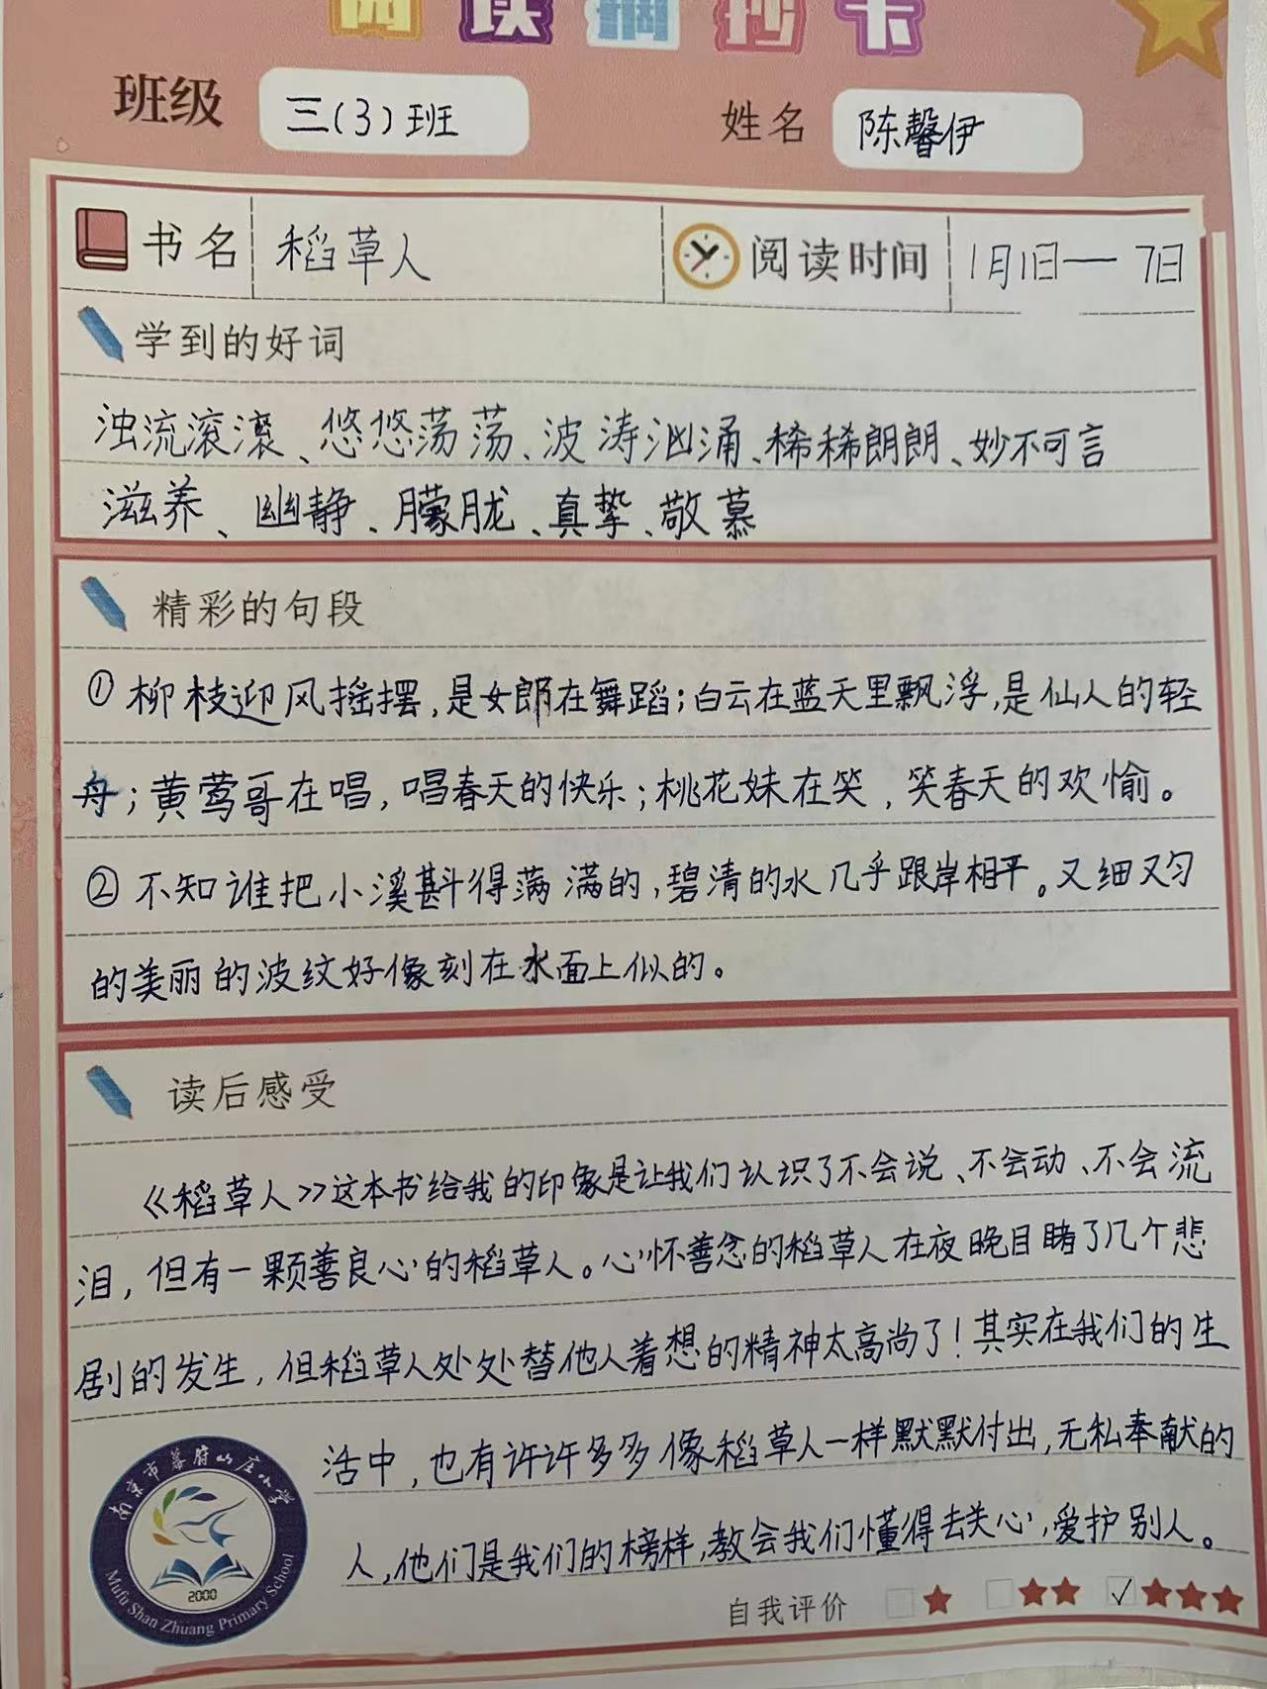 阅读摘抄卡
班级 三(3)班 姓名 陈馨伊
书名 稻草人 阅读时间 1月1日—7日
学到的好词
浊流滚滚、悠悠荡荡、波涛汹涌、稀稀朗朗、妙不可言
滋养、幽静、朦胧、真挚、敬慕
精彩的句段
①柳枝迎风摇摆,是女郎在舞蹈;白云在蓝天里飘浮,是仙人的轻
舟;黄莺哥在唱,唱春天的快乐;桃花妹在笑,笑春天的欢愉。
②不知谁把小溪斟得满满的,碧清的水几乎跟岸相平。又细又匀
的美丽的波纹好像刻在水面上似的。
读后感受
《稻草人》这本书给我的印象是让我们认识了不会说、不会动、不会流
泪,但有一颗善良心的稻草人。心怀善念的稻草人在夜晚目睹了几个悲
剧的发生,但稻草人处处替他人着想的精神太高尚了!其实在我们的生
活中,也有许许多多像稻草人一样默默付出,无私奉献的
人,他们是我们的榜样,教会我们懂得去关心,爱护别人。
南京市幕府山庄小学
2000
Mufu Shan Zhuang Primary School
自我评价 ✓